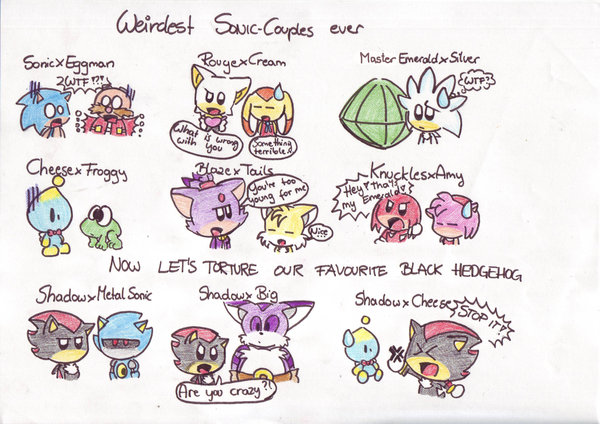 Weirdest Sonic-Couples ever
Sonic x Eggman
2WTF!?!
Rouge x Cream
What is wrong
with you
Something
terrible!
Master Emerald x Silver
WTF?
Cheese x Froggy
Blaze x Tails
You're too
young for me
Knuckles x Amy
Hey that's
my
Emerald!
NOW LET'S TORTURE OUR FAVOURITE BLACK HEDGEHOG
Shadow x Metal Sonic
Shadow x Big
Are you crazy?!
Shadow x Cheese
STOP IT!